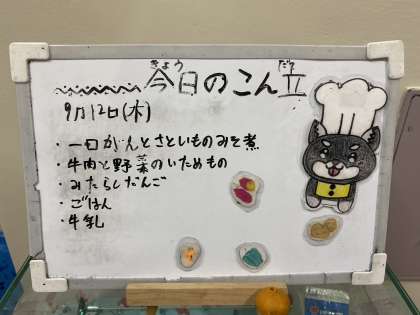 今日のこん立
きょう だて
9月12日(木)
・一口がんとさといものみそ煮
・牛肉と野菜のいためもの
・みたらしだんご
・ごはん
・牛乳